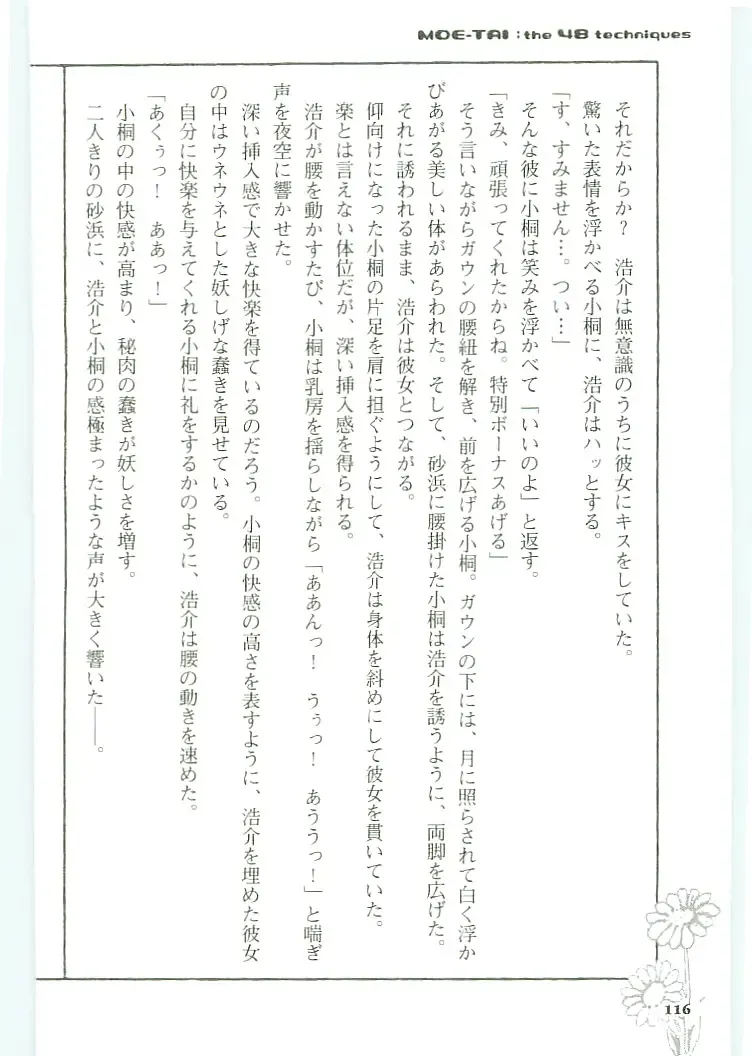 MOE-TAI : the 48 techniques
それだからか？　浩介は無意識のうちに彼女にキスをしていた。
驚いた表情を浮かべる小桐に、浩介はハッとする。
「す、すみません…。つい…」
そんな彼に小桐は笑みを浮かべて「いいのよ」と返す。
「きみ、頑張ってくれたからね。特別ボーナスあげる」
そう言いながらガウンの腰紐を解き、前を広げる小桐。ガウンの下には、月に照らされて白く浮か
びあがる美しい体があらわれた。そして、砂浜に腰掛けた小桐は浩介を誘うように、両脚を広げた。
それに誘われるまま、浩介は彼女とつながる。
仰向けになった小桐の片足を肩に担ぐようにして、浩介は身体を斜めにして彼女を貫いていた。
楽とは言えない体位だが、深い挿入感を得られる。
浩介が腰を動かすたび、小桐は乳房を揺らしながら「ああんっ！　うぅっ！　あううっ！」と喘ぎ
声を夜空に響かせた。
深い挿入感で大きな快楽を得ているのだろう。小桐の快感の高さを表すように、浩介を埋めた彼女
の中はウネウネとした妖しげな蠢きを見せている。
自分に快楽を与えてくれる小桐に礼をするかのように、浩介は腰の動きを速めた。
「あくぅっ！　ああっ！」
小桐の中の快感が高まり、秘肉の蠢きが妖しさを増す。
二人きりの砂浜に、浩介と小桐の感極まったような声が大きく響いた――。
116